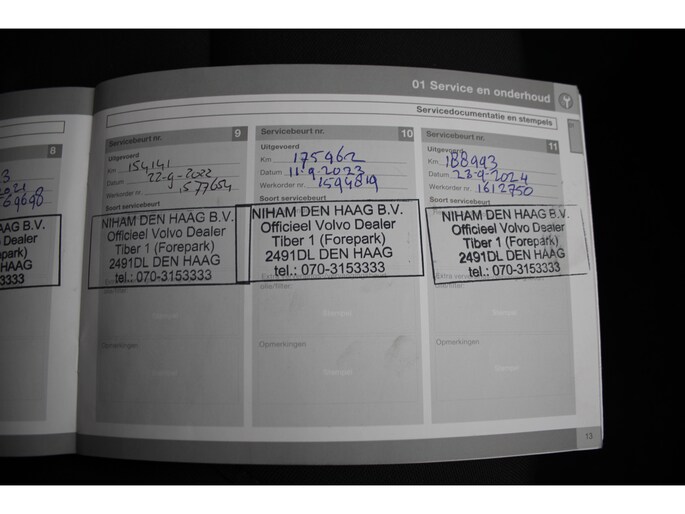 01 Service en onderhoud
Servicedocumentatie en stempels
8
69698
B.V.
Dealer
ark)
HAAG
3333
Servicebeurt nr. 9
Uitgevoerd
Km 154141
Datum 22-9-2022
Werkorder nr. 1577654
Soort servicebeurt
NIHAM DEN HAAG B.V.
Officieel Volvo Dealer
Tiber 1 (Forepark)
2491DL DEN HAAG
tel.: 070-3153333
Stempel
Opmerkingen
Servicebeurt nr. 10
Uitgevoerd
Km 175962
Datum 11-9-2023
Werkorder nr. 1594819
Soort servicebeurt
NIHAM DEN HAAG B.V.
Officieel Volvo Dealer
Tiber 1 (Forepark)
2491DL DEN HAAG
tel.: 070-3153333
Stempel
Opmerkingen
Stempel
Servicebeurt nr. 11
Uitgevoerd
Km 188993
Datum 23-9-2024
Werkorder nr. 1612750
Soort servicebeurt
NIHAM DEN HAAG B.V.
Officieel Volvo Dealer
Tiber 1 (Forepark)
2491DL DEN HAAG
tel.: 070-3153333
Stempel
Opmerkingen
13